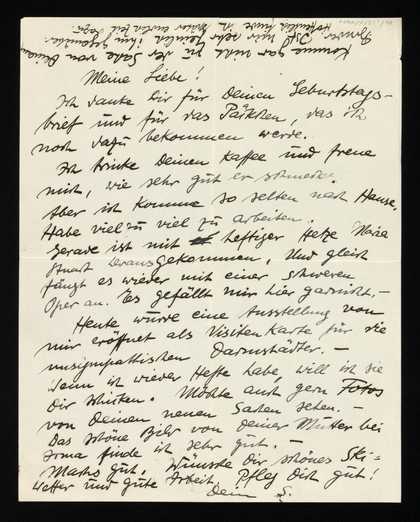 Komme gar nicht zu der Sache von Deinem
Bruder. Ist mir sehr peinlich ihm gegenüber.
Meine Liebe!
Ich danke Dir für Deinen Geburtstags-
brief und für das Päckchen, das ich
noch dazu bekommen werde.
Ich trinke Deinen Kaffee und freue
mich, wie sehr gut er schmeckt.
Aber ich komme so selten nach Hause,
Habe viel zu viel zu arbeiten.
Gerade ist mit heftiger Hetze Maria
Stuart herausgekommen. Und gleich
fängt es wieder mit einer schweren
Oper an. Es gefällt mir hier garnicht. –
Heute wurde eine Ausstellung von
mir eröffnet als Visitenkarte für die
unsympathischen Darmstädter. –
Wenn ich wieder Hefte habe, will ich sie
Dir schicken. Möchte auch gern Fotos
von Deinen neuen Sachen sehen. –
Das schöne Bild von Deiner Mutter bei
Irma finde ich sehr gut. –
Machs gut. Wünsche Dir schönes Ski-
wetter und gute Arbeit. Pfleg Dich gut!
Dein S.